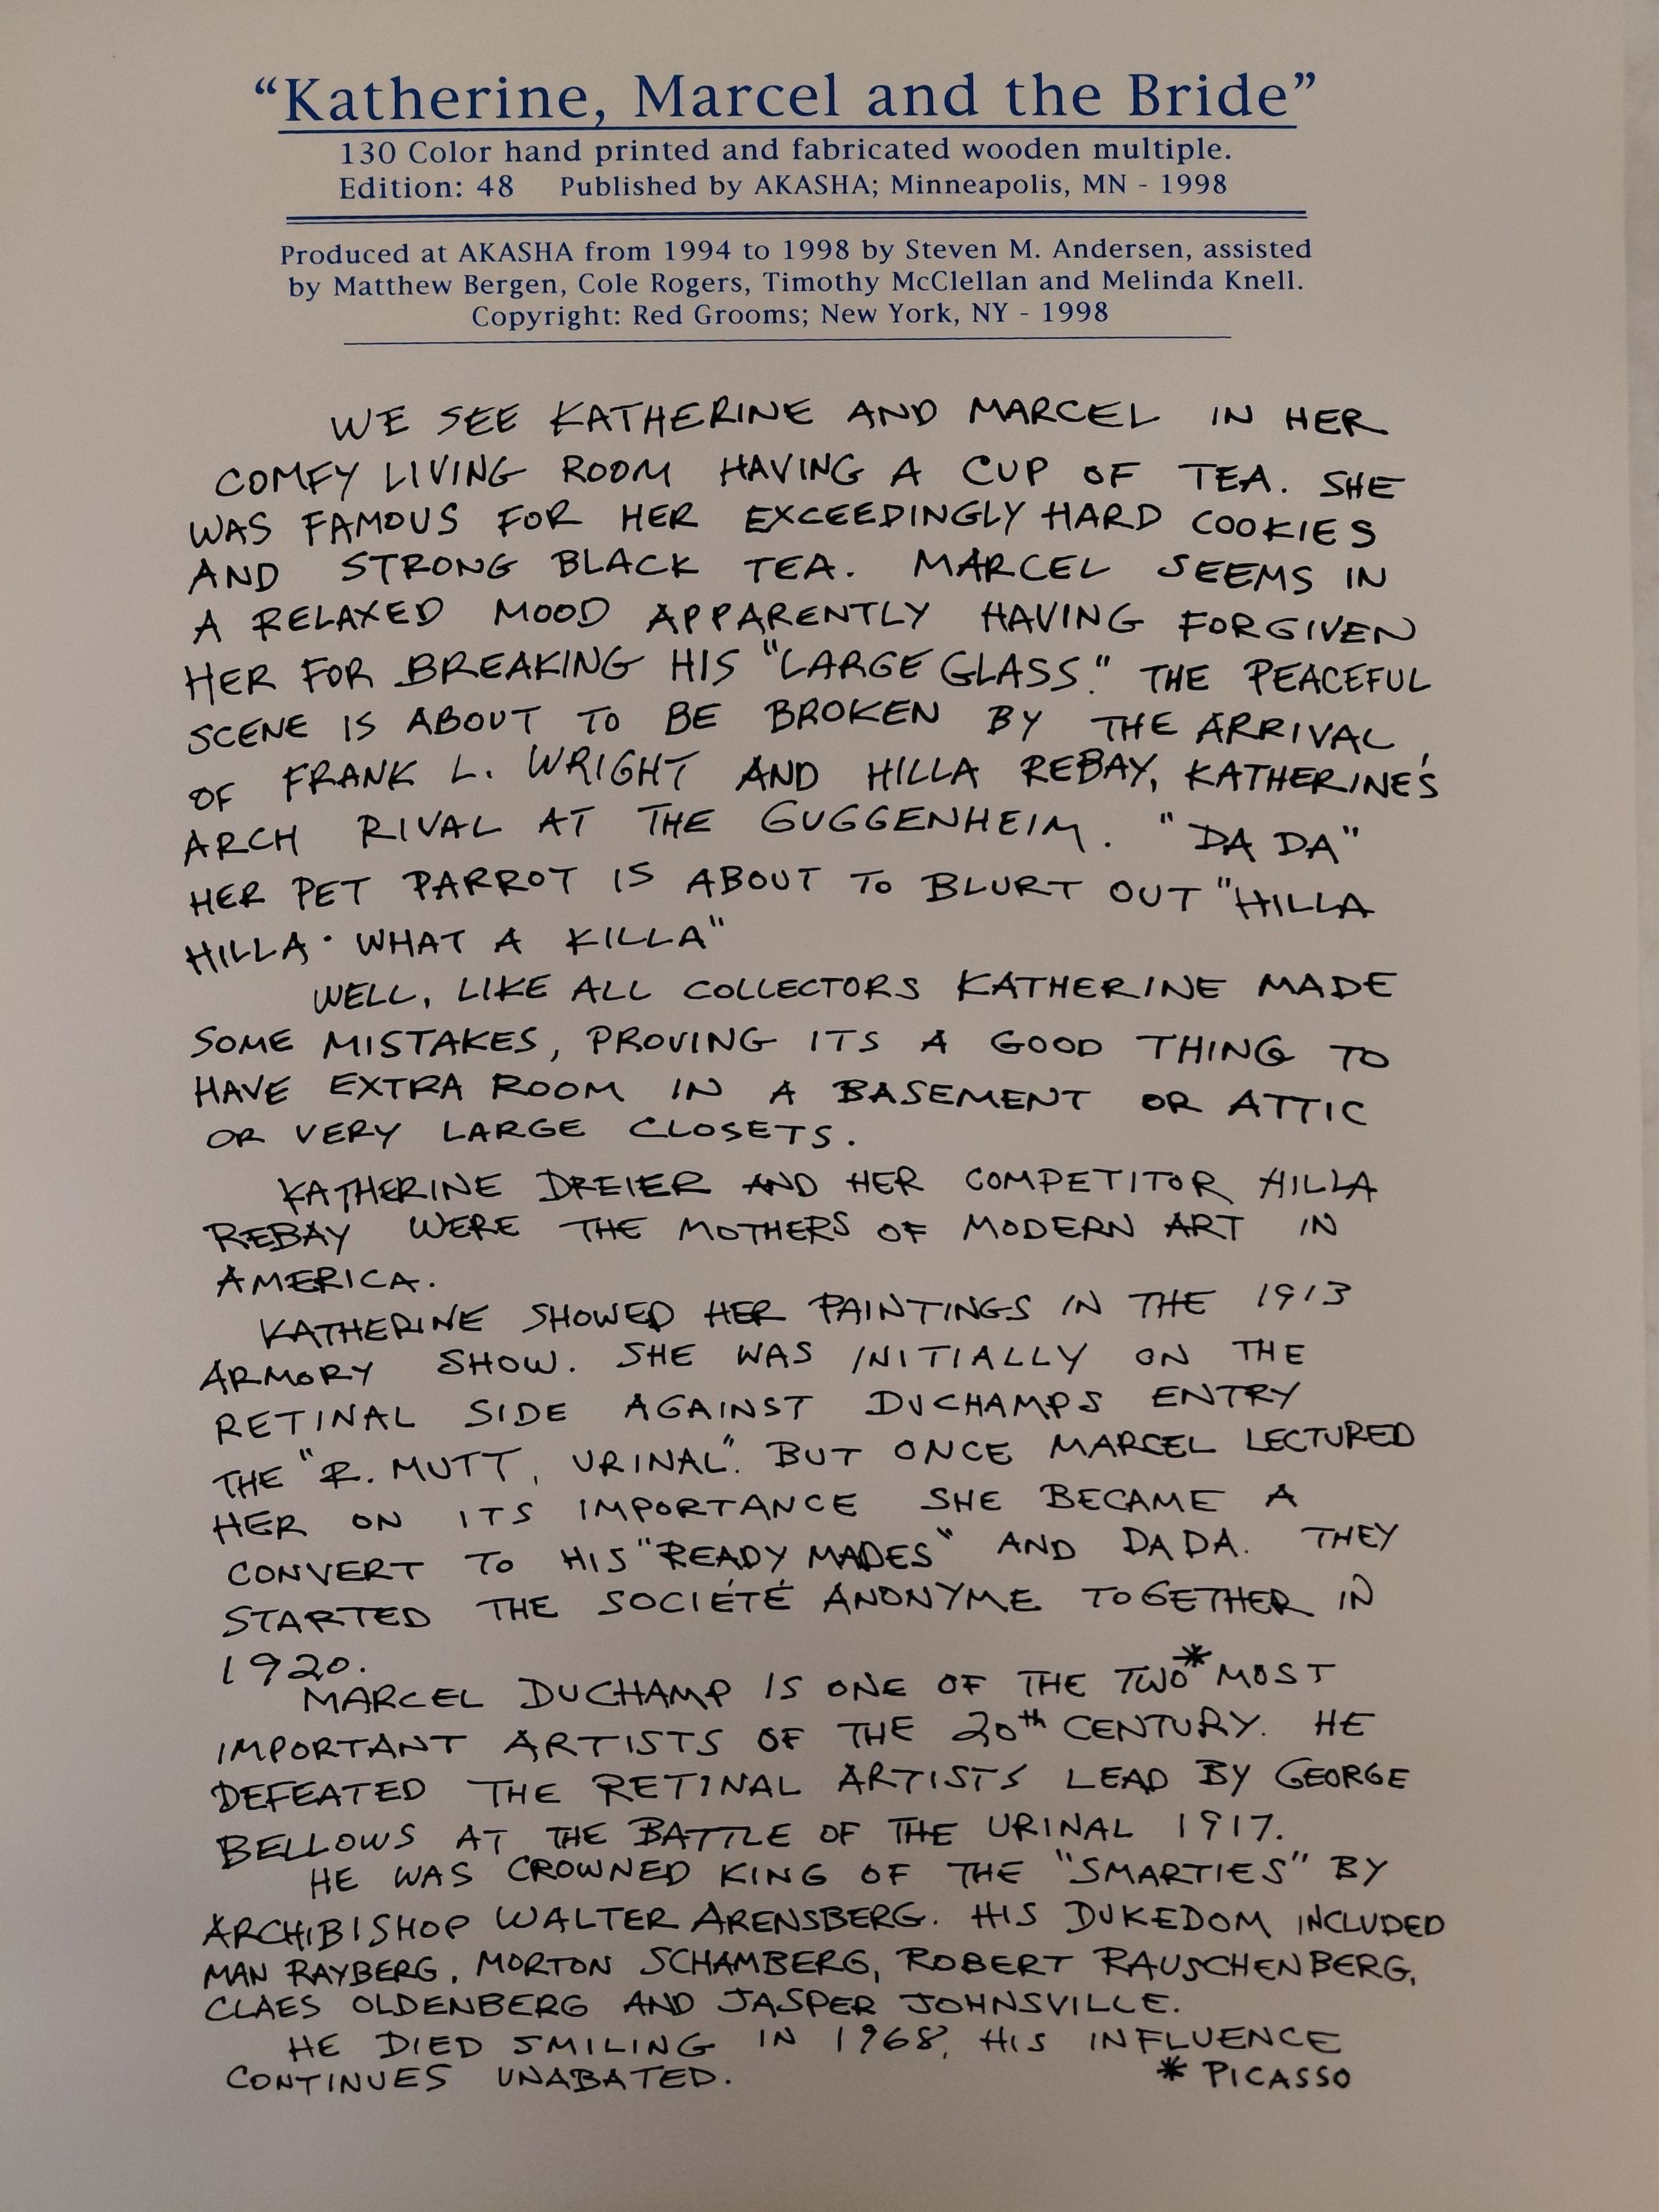 “Katherine, Marcel and the Bride”
130 Color hand printed and fabricated wooden multiple.
Edition: 48 Published by AKASHA; Minneapolis, MN - 1998
Produced at AKASHA from 1994 to 1998 by Steven M. Andersen, assisted
by Matthew Bergen, Cole Rogers, Timothy McClellan and Melinda Knell.
Copyright: Red Grooms; New York, NY - 1998
WE SEE KATHERINE AND MARCEL IN HER
COMFY LIVING ROOM HAVING A CUP OF TEA. SHE
WAS FAMOUS FOR HER EXCEEDINGLY HARD COOKIES
AND STRONG BLACK TEA. MARCEL SEEMS IN
A RELAXED MOOD APPARENTLY HAVING FORGIVEN
HER FOR BREAKING HIS "LARGE GLASS." THE PEACEFUL
SCENE IS ABOUT TO BE BROKEN BY THE ARRIVAL
OF FRANK L. WRIGHT AND HILLA REBAY, KATHERINE'S
ARCH RIVAL AT THE GUGGENHEIM. "DA DA"
HER PET PARROT IS ABOUT TO BLURT OUT "HILLA
HILLA · WHAT A KILLA"
WELL, LIKE ALL COLLECTORS KATHERINE MADE
SOME MISTAKES, PROVING ITS A GOOD THING TO
HAVE EXTRA ROOM IN A BASEMENT OR ATTIC
OR VERY LARGE CLOSETS.
KATHERINE DREIER AND HER COMPETITOR HILLA
REBAY WERE THE MOTHERS OF MODERN ART IN
AMERICA.
KATHERINE SHOWED HER PAINTINGS IN THE 1913
ARMORY SHOW. SHE WAS INITIALLY ON THE
RETINAL SIDE AGAINST DUCHAMPS ENTRY
THE "R. MUTT, URINAL". BUT ONCE MARCEL LECTURED
HER ON ITS IMPORTANCE SHE BECAME A
CONVERT TO HIS "READY MADES" AND DADA. THEY
STARTED THE SOCIÉTÉ ANONYME TOGETHER IN
1920.
MARCEL DUCHAMP IS ONE OF THE TWO* MOST
IMPORTANT ARTISTS OF THE 20th CENTURY. HE
DEFEATED THE RETINAL ARTISTS LEAD BY GEORGE
BELLOWS AT THE BATTLE OF THE URINAL 1917.
HE WAS CROWNED KING OF THE "SMARTIES" BY
ARCHIBISHOP WALTER ARENSBERG. HIS DUKEDOM INCLUDED
MAN RAYBERG, MORTON SCHAMBERG, ROBERT RAUSCHENBERG,
CLAES OLDENBERG AND JASPER JOHNSVILLE.
HE DIED SMILING IN 1968, HIS INFLUENCE
CONTINUES UNABATED. * PICASSO